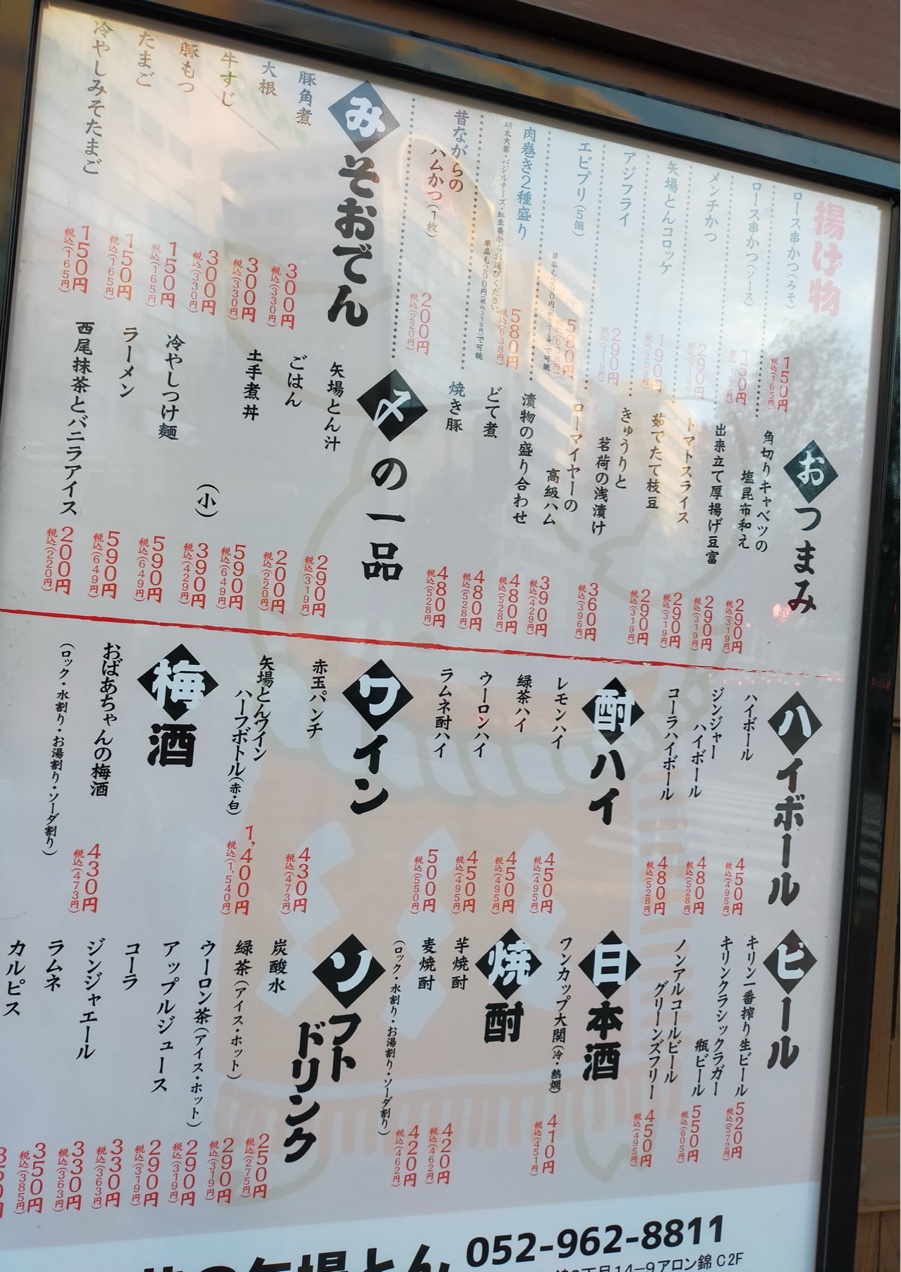 揚げ物
ロース串かつ(みそ)
150円
税込(165円)
ロース串かつ(ソース)
150円
税込(165円)
メンチかつ
290円
矢場とんコロッケ
190円
アジフライ
290円
エビプリ(5個)
580円
肉巻き2種盛り
580円
税込(638円)
昔ながらの
ハムかつ(1枚)
200円
税込(220円)
みそおでん
豚角煮
300円
税込(330円)
大根
300円
税込(330円)
牛すじ
300円
税込(330円)
豚もつ
150円
税込(165円)
たまご
150円
税込(165円)
冷やしみそたまご
150円
税込(165円)
おつまみ
角切りキャベツの
塩昆布和え
290円
税込(319円)
出来立て厚揚げ豆富
290円
税込(319円)
トマトスライス
290円
税込(319円)
茹でたて枝豆
290円
税込(319円)
きゅうりと
茗荷の浅漬け
360円
税込(396円)
ローマイヤーの
高級ハム
390円
税込(429円)
漬物の盛り合わせ
480円
税込(528円)
どて煮
480円
税込(528円)
焼き豚
480円
税込(528円)
〆の一品
矢場とん汁
290円
税込(319円)
ごはん
200円
税込(220円)
土手煮丼
590円
税込(649円)
(小)
390円
税込(429円)
冷やしつけ麺
590円
税込(649円)
ラーメン
590円
税込(649円)
西尾抹茶とバニラアイス
200円
税込(220円)
ハイボール
ハイボール
450円
税込(495円)
ジンジャー
ハイボール
480円
税込(528円)
コーラハイボール
480円
税込(528円)
酎ハイ
レモンハイ
450円
税込(495円)
緑茶ハイ
450円
税込(495円)
ウーロンハイ
450円
税込(495円)
ラムネ酎ハイ
500円
税込(550円)
ワイン
赤玉パンチ
430円
税込(473円)
矢場とんワイン
ハーフボトル(赤・白)
1,400円
税込(1,540円)
梅酒
おばあちゃんの梅酒
430円
税込(473円)
(ロック・水割り・お湯割り・ソーダ割り)
ビール
キリン一番搾り生ビール
520円
税込(572円)
キリンクラシックラガー
瓶ビール
550円
税込(605円)
ノンアルコールビール
グリーンズフリー
450円
税込(495円)
日本酒
ワンカップ大関(冷・熱燗)
410円
税込(451円)
焼酎
芋焼酎
420円
税込(462円)
麦焼酎
420円
税込(462円)
(ロック・水割り・お湯割り・ソーダ割り)
ソフト
ドリンク
炭酸水
250円
税込(275円)
緑茶(アイス・ホット)
290円
税込(319円)
ウーロン茶(アイス・ホット)
290円
税込(319円)
アップルジュース
290円
税込(319円)
コーラ
330円
税込(363円)
ジンジャエール
330円
税込(363円)
ラムネ
350円
税込(385円)
カルピス
矢場とん
052-962-8811
丁目14-9アロン錦 C2F